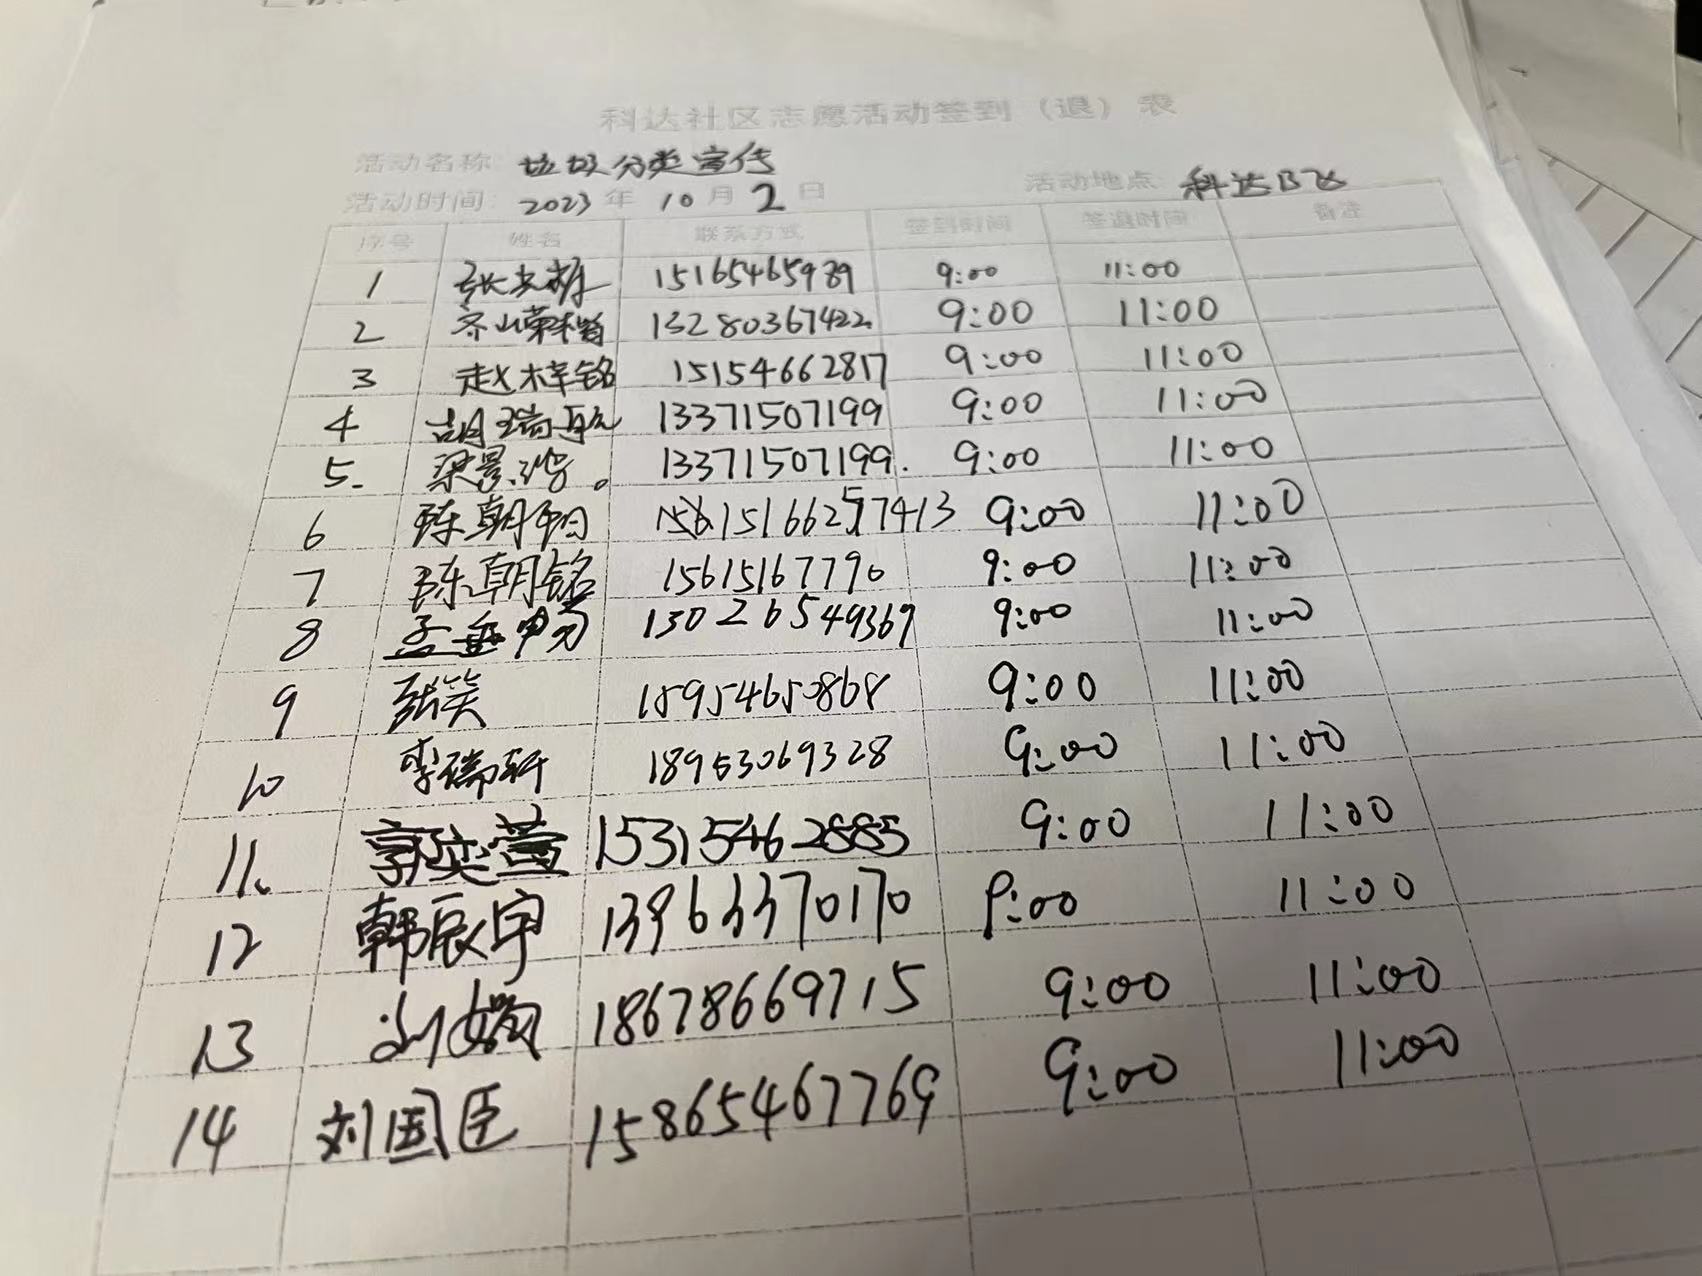 科达社区志愿活动签到（退）表
活动名称: 垃圾分类宣传
活动时间: 2023年10月2日 活动地点: 科达B区
序号 姓名 联系方式 签到时间 签退时间 备注
1 张 15165465989 9:00 11:00
2 13280367422 9:00 11:00
3 赵梓铭 15154662817 9:00 11:00
4 胡瑞航 13371507199 9:00 11:00
5. 梁景 13371507199. 9:00 11:00
6 陈朝阳 9:00 11:00
7 陈朝铭 15615167790 9:00 11:00
8 孟 13026549369 9:00 11:00
9 张笑 15954650868 9:00 11:00
10 李瑞轩 18953069328 9:00 11:00
11、 郭奕萱 15315462885 9:00 11:00
12 韩辰宇 13963370170 9:00 11:00
13 刘嫣 18678669715 9:00 11:00
14 刘国臣 15865467769 9:00 11:00